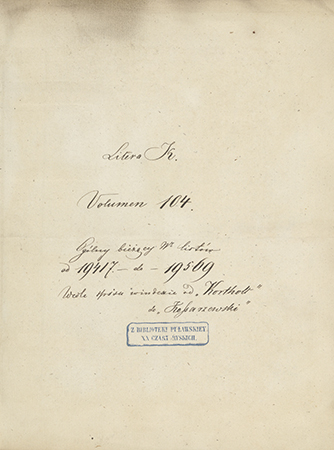 Litera K.
Volumen 104.
Ogólny bieżący Nr listów
od 19417. — do — 19569
Wedle spisu w indexie od „Kortholt"
do „Kossarzewski"
Z BIBLIOTEKI PUŁAWSKIEJ
XX. CZARTORYSKICH.